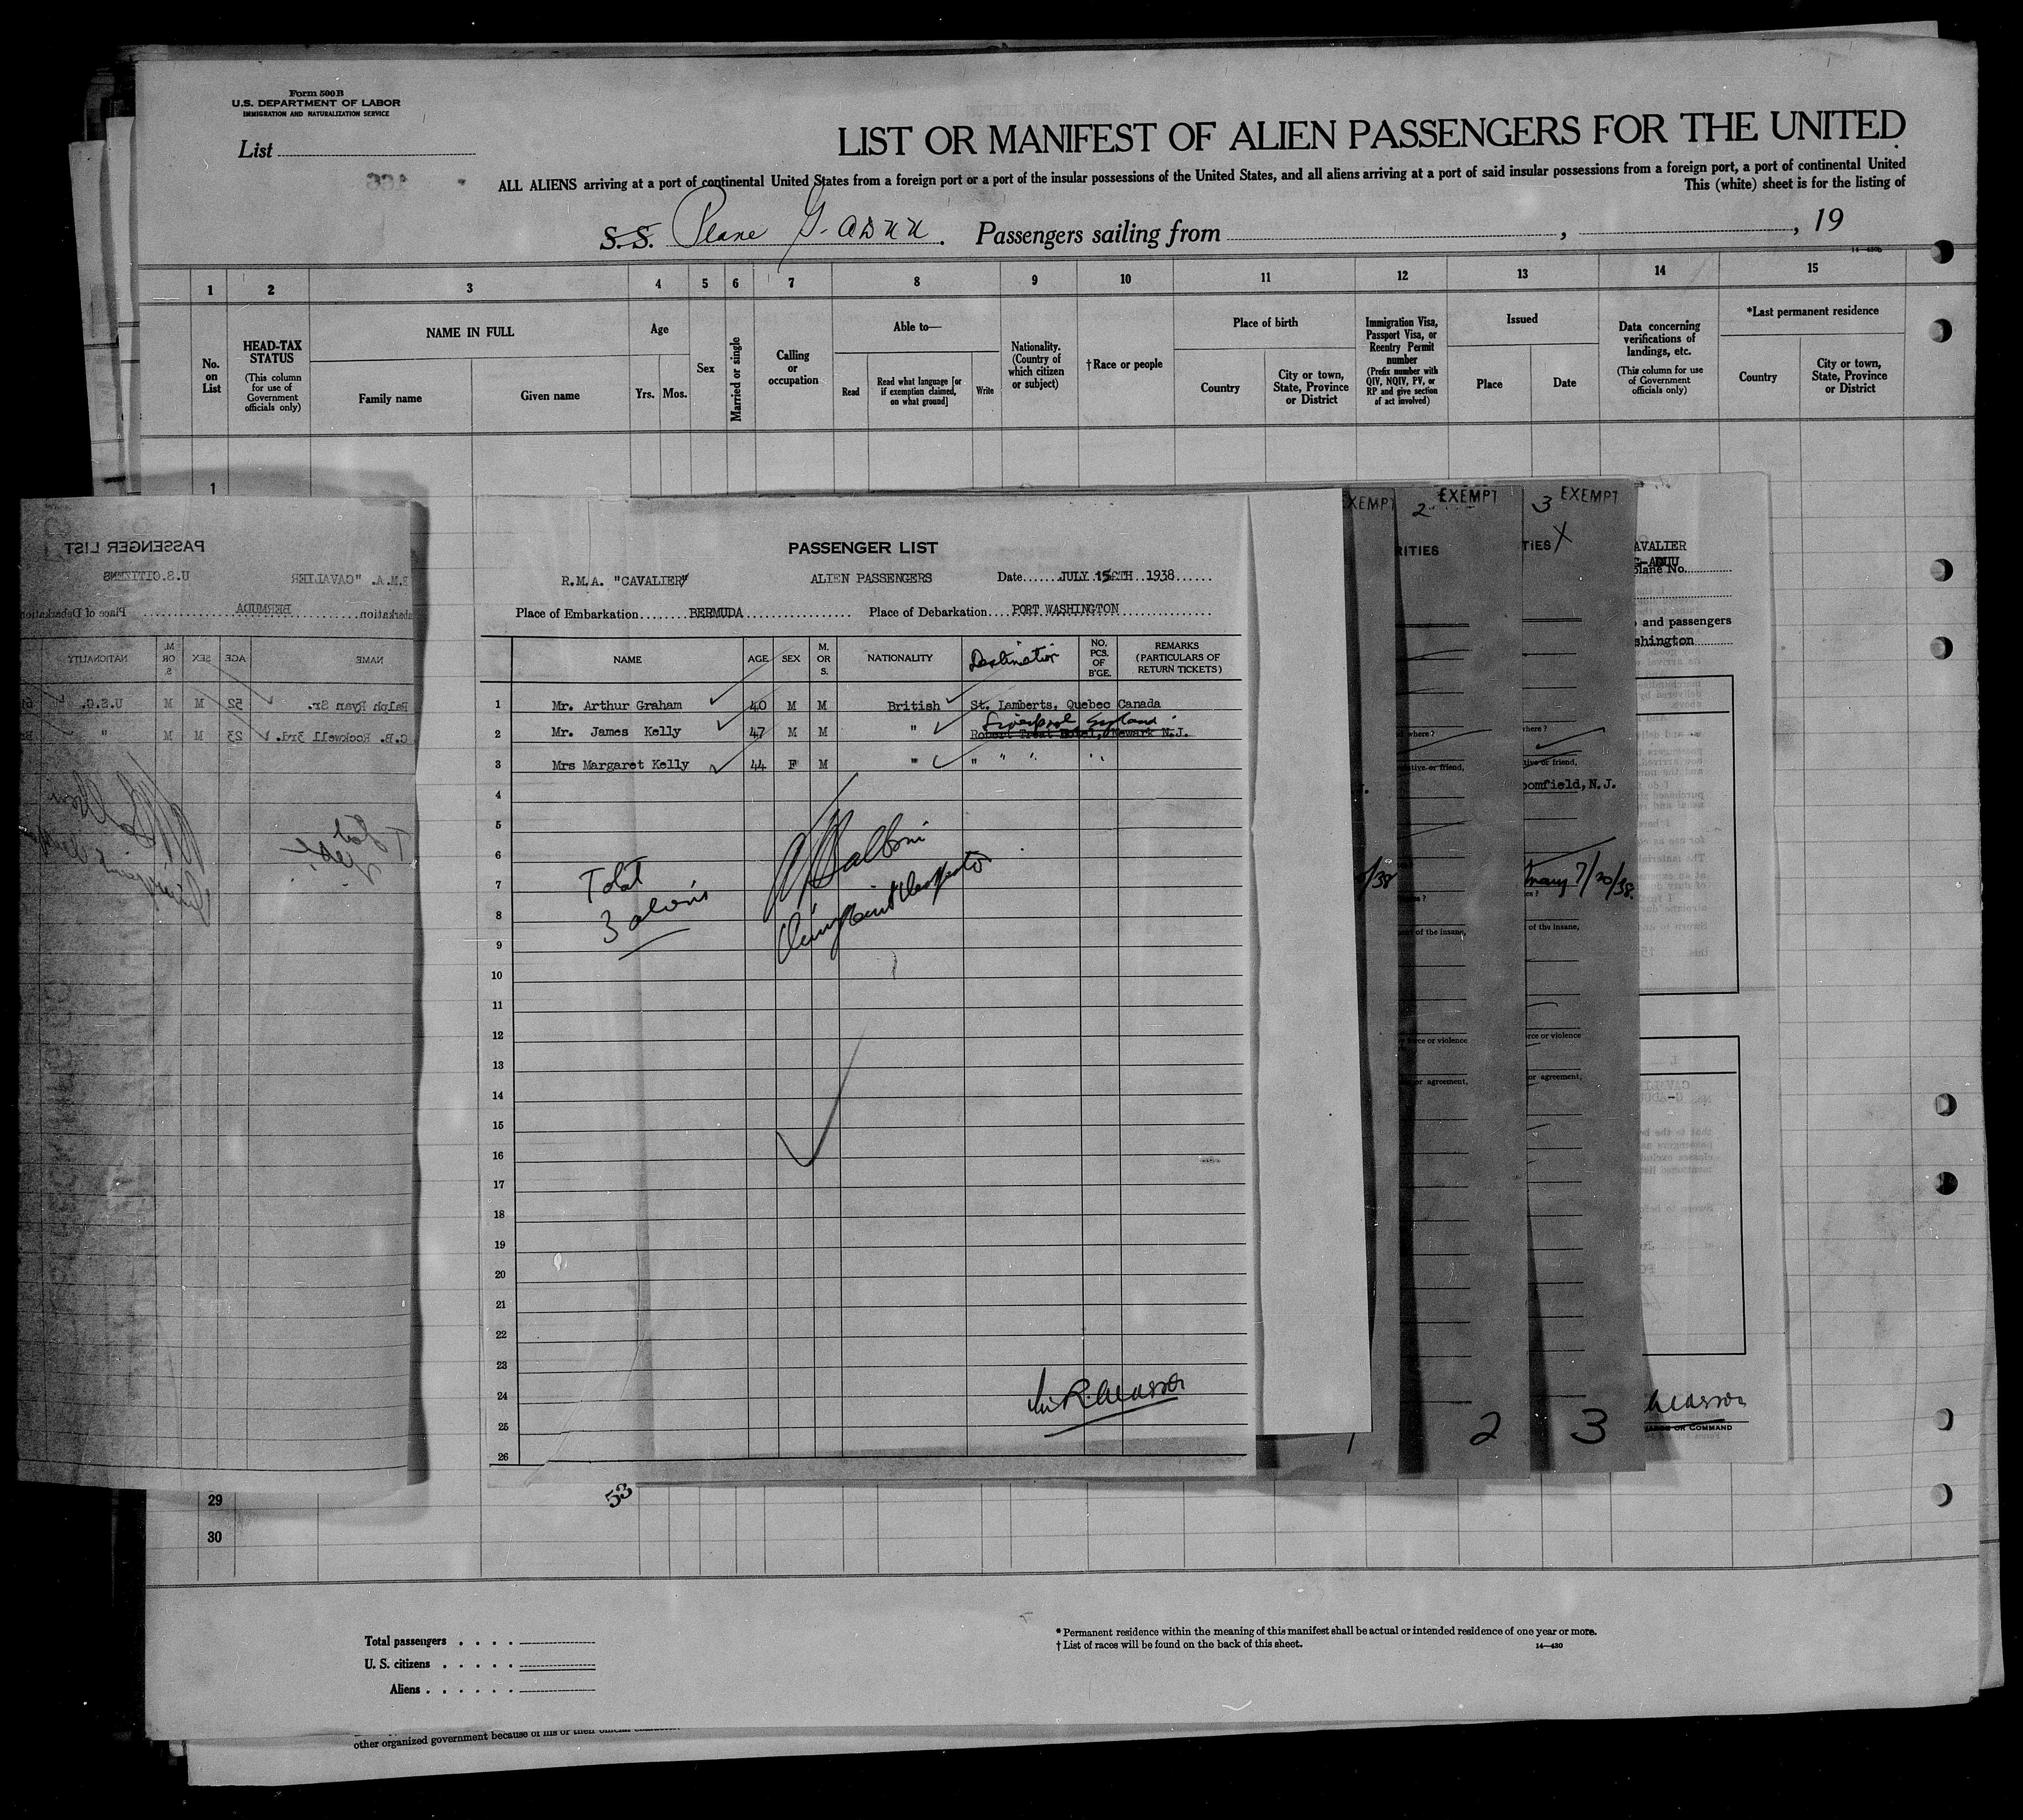 Form 500 B
U.S. DEPARTMENT OF LABOR
IMMIGRATION AND NATURALIZATION SERVICE
List
LIST OR MANIFEST OF ALIEN PASSENGERS FOR THE UNITED
ALL ALIENS arriving at a port of continental United States from a foreign port or a port of the insular possessions of the United States, and all aliens arriving at a port of said insular possessions from a foreign port, a port of continental United
This (white) sheet is for the listing of
S.S. Plane G-ADUU. Passengers sailing from , , 19
14—430b
1 2 3 4 5 6 7 8 9 10 11 12 13 14 15
No. on List
HEAD-TAX STATUS (This column for use of Government officials only)
NAME IN FULL
Family name Given name
Age
Yrs. Mos.
Sex
Married or single
Calling or occupation
Able to—
Read Read what language [or if exemption claimed, on what ground] Write
Nationality. (Country of which citizen or subject)
†Race or people
Place of birth
Country City or town, State, Province or District
Immigration Visa, Passport Visa, or Reentry Permit number (Prefix number with QIV, NQIV, PV, or RP and give section of act involved)
Issued
Place Date
Data concerning verifications of landings, etc. (This column for use of Government officials only)
*Last permanent residence
Country City or town, State, Province or District
1
PASSENGER LIST
U.S.CITIZENS
R.M.A. "CAVALIER
BERMUDA
Place of Debarkation
NAME AGE SEX M. OR S. NATIONALITY
Ralph Ryan Sr. 52 M M U.S.C.
C.B. Rockwell 3rd. 23 M M "
PASSENGER LIST
R.M.A. "CAVALIER" ALIEN PASSENGERS Date JULY 15TH 1938
Place of Embarkation BERMUDA Place of Debarkation PORT WASHINGTON
NAME AGE SEX M. OR S. NATIONALITY Destination NO. PCS. OF B'GE. REMARKS (PARTICULARS OF RETURN TICKETS)
1 Mr. Arthur Graham 40 M M British St. Lamberts, Quebec Canada
Liverpool England
2 Mr. James Kelly 47 M M " Robert Treat Hotel, Newark N.J.
3 Mrs Margaret Kelly 44 F M " " " " "
4
5
6
7
8
9
10
11
12
13
14
15
16
17
18
19
20
21
22
23
24
25
26
Total
3 aliens
EXEMPT
2 EXEMPT
3 EXEMPT
RITIES
TIES X
where?
relative or friend,
oomfield, N.J.
/38
7/20/38.
of the insane,
of the insane,
force or violence
or agreement,
or agreement,
1
2
3
AVALIER
G-ADUU
plane No.
and passengers
shington
OR COMMAND
53
29
30
Total passengers
U. S. citizens
Aliens
* Permanent residence within the meaning of this manifest shall be actual or intended residence of one year or more.
† List of races will be found on the back of this sheet.
14—430
other organized government because of his or their official